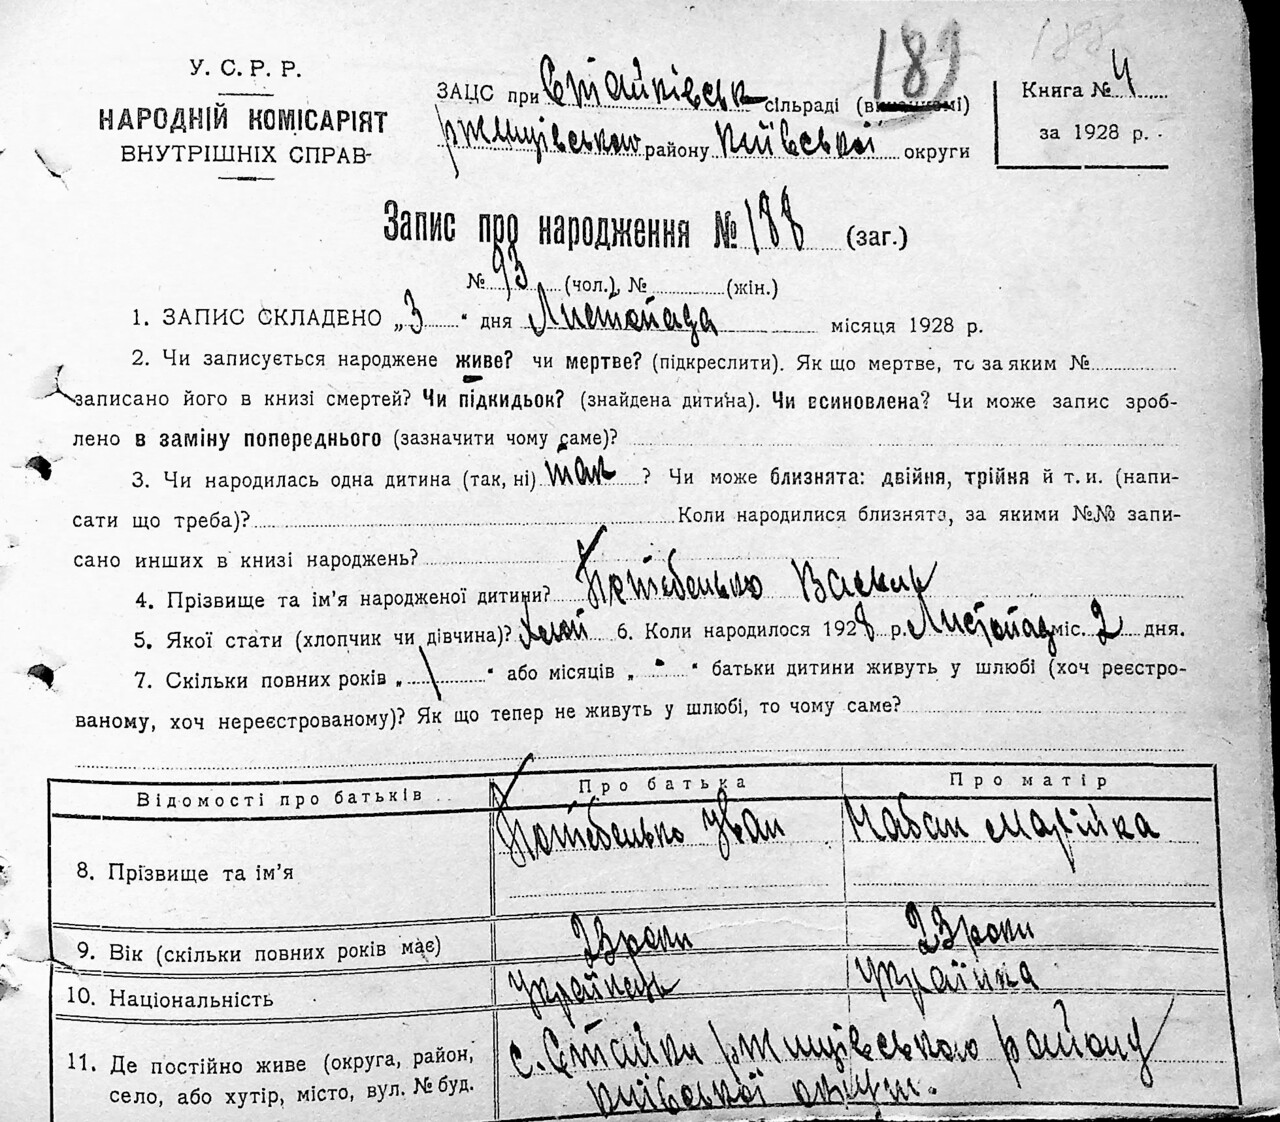 189
188
У. С. Р. Р.
НАРОДНІЙ КОМІСАРІЯТ
ВНУТРІШНІХ СПРАВ
ЗАЦС при Стайківськ сільраді (виконкомі)
Ржищівського району Київської округи
Книга № 4
за 1928 р.
Запис про народження № 188 (заг.)
№ 93 (чол.), № (жін.)
1. ЗАПИС СКЛАДЕНО „3“ дня Листопада місяця 1928 р.
2. Чи записується народжене живе? чи мертве? (підкреслити). Як що мертве, то за яким №
записано його в книзі смертей? Чи підкидьок? (знайдена дитина). Чи всиновлена? Чи може запис зроб-
лено в заміну попереднього (зазначити чому саме)?
3. Чи народилась одна дитина (так, ні) так ? Чи може близнята: двійня, трійня й т. и. (напи-
сати що треба)? Коли народилися близнята, за якими №№ запи-
сано инших в книзі народжень?
4. Прізвище та ім’я народженої дитини? Потебенько Василь
5. Якої стати (хлопчик чи дівчина)? 6. Коли народилося 1928 р. Листопад міс. 2 дня.
7. Скільки повних років „ “ або місяців „ “ батьки дитини живуть у шлюбі (хоч реєстро-
ваному, хоч нереєстрованому)? Як що тепер не живуть у шлюбі, то чому саме?
Відомості про батьків Про батька Про матір
8. Прізвище та ім’я Потебенько Іван Чабан Марійка
9. Вік (скільки повних років має) 23 роки 23 роки
10. Національність Українець Українка
11. Де постійно живе (округа, район, с. Стайки Ржищівського району
село, або хутір, місто, вул. № буд. Київської округи.